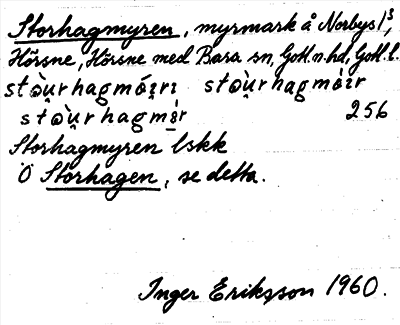 Storhagmyren, myrmark å Norbys 1³,
Hörsne, Hörsne med Bara sn, Gotl. n. hd, Gotl. l.
stọ̀u̯rhagmói̯ri stọ̀u̯rhagmói̯r
stọ̀u̯rhagmö́r 256
Storhagmyren lskk
Ö Storhagen, se detta.
Inger Eriksson 1960.